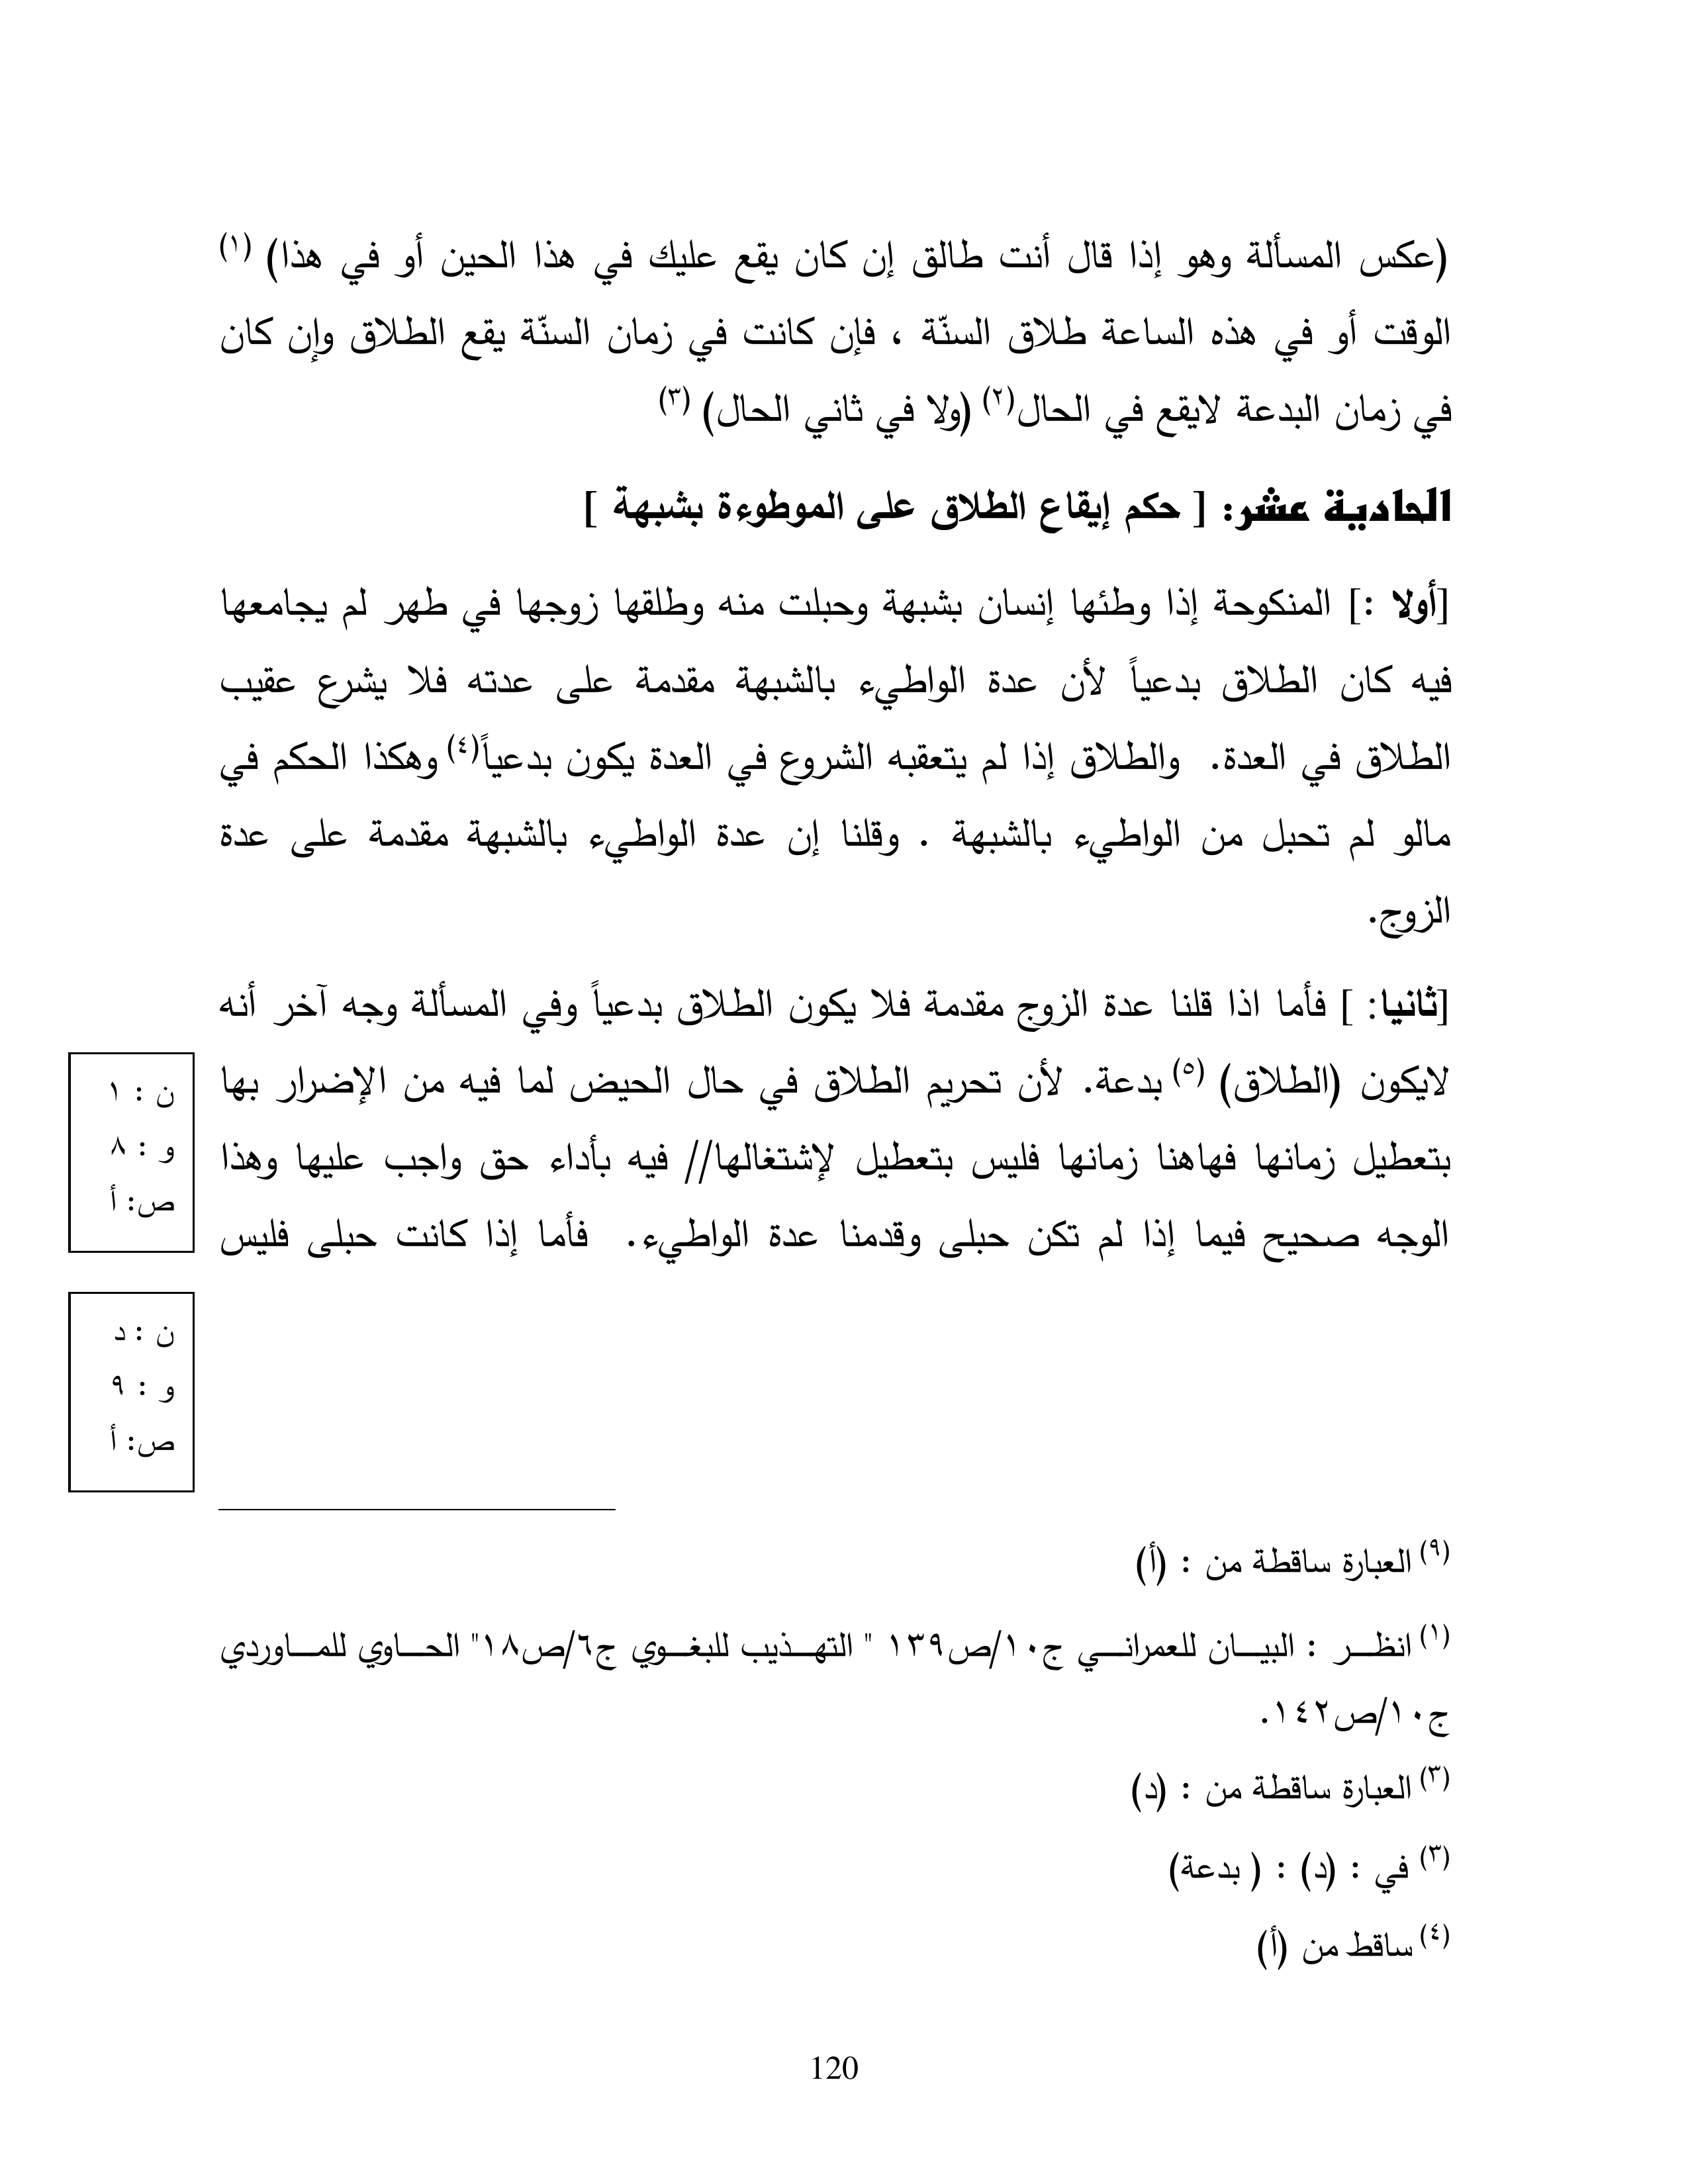 (عكس المسألة وهو إذا قال أنت طالق إن كان يقع عليك في هذا الحين أو في هذا) (١)
الوقت أو في هذه الساعة طلاق السنّة ، فإن كانت في زمان السنّة يقع الطلاق وإن كان
في زمان البدعة لايقع في الحال(٢) (ولا في ثاني الحال) (٣)
الحادية عشر: [ حكم إيقاع الطلاق على الموطوءة بشبهة ]
[أولا :] المنكوحة إذا وطئها إنسان بشبهة وحبلت منه وطلقها زوجها في طهر لم يجامعها
فيه كان الطلاق بدعياً لأن عدة الواطيء بالشبهة مقدمة على عدته فلا يشرع عقيب
الطلاق في العدة. والطلاق إذا لم يتعقبه الشروع في العدة يكون بدعياً(٤) وهكذا الحكم في
مالو لم تحبل من الواطيء بالشبهة . وقلنا إن عدة الواطيء بالشبهة مقدمة على عدة
الزوج.
[ثانيا: ] فأما اذا قلنا عدة الزوج مقدمة فلا يكون الطلاق بدعياً وفي المسألة وجه آخر أنه
لايكون (الطلاق) (٥) بدعة. لأن تحريم الطلاق في حال الحيض لما فيه من الإضرار بها
بتعطيل زمانها فهاهنا زمانها فليس بتعطيل لإشتغالها// فيه بأداء حق واجب عليها وهذا
الوجه صحيح فيما إذا لم تكن حبلى وقدمنا عدة الواطيء. فأما إذا كانت حبلى فليس
ن : ١
و : ٨
ص: أ
ن : د
و : ٩
ص: أ
(٩) العبارة ساقطة من : (أ)
(١) انظـــر : البيـــان للعمرانـــي ج١٠/ص١٣٩ " التهـــذيب للبغـــوي ج٦/ص١٨" الحـــاوي للمـــاوردي
ج١٠/ص١٤٢.
(٣) العبارة ساقطة من : (د)
(٣) في : (د) : ( بدعة)
(٤) ساقط من (أ)
120